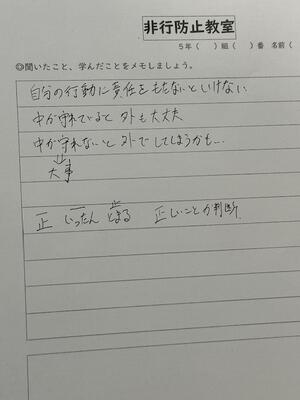 非行防止教室
5年（　）組（　）番 名前（
◎聞いたこと、学んだことをメモしましょう。
自分の行動に責任をもたないといけない
中が守れていると 外も大丈夫
中が守れないと 外でしてしまうかも…
↓
大事
正 いったん とまる 正しいことか判断